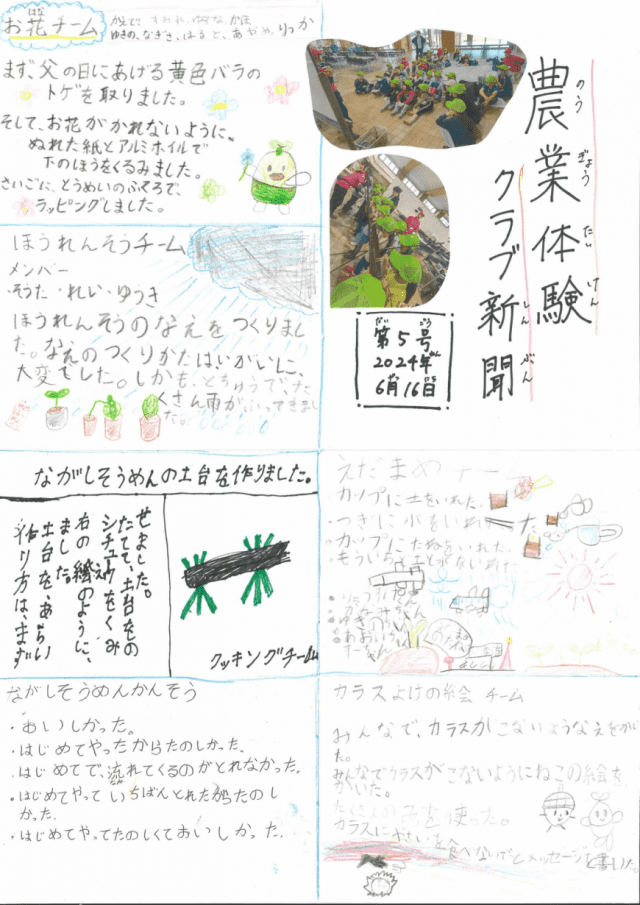 農業体験
のうぎょうたいけん
クラブ新聞
しんぶん
第5号
だい ごう
2024年
6月16日
お花チーム
はな
まず、父の日にあげる黄色バラの
トゲを取りました。
そして、お花がかれないように、
ぬれた紙とアルミホイルで
下のほうをくるみました。
さいごに、とうめいのふくろで、
ラッピングしました。
ほうれんそうチーム
メンバー
・そうた・れい・ゆうき
ほうれんそうのなえをつくりまし
た。なえのつくりかたはいがいに、
大変でした。しかも、とちゅうで、た
くさん雨がふってきまし
た。
ながしそうめんの土台を作りました。
作り方は、まず
土台を、あらい
ました。
右の絵のように、
シチュウをくみ
たてて、土台をの
せました。
クッキングチーム
えだまめチーム
・カップに土をいれた。
・つぎに水をいれた
・カップにたねをいれた。
ながしそうめんかんそう
・おいしかった。
・はじめてやったからたのしかった。
・はじめてで、流れてくるのがとれなかった。
・はじめてやっていちばんとれたからたのし
かった。
・はじめてやってたのしくておいしかった。
カラスよけの絵 チーム
みんなで、カラスがこないようなえをかい
た。
みんなでカラスがこないようにねこの絵を
かいた。
たくさんの色を使った。
カラスにやさいを食べないでとメッセージを書いた。